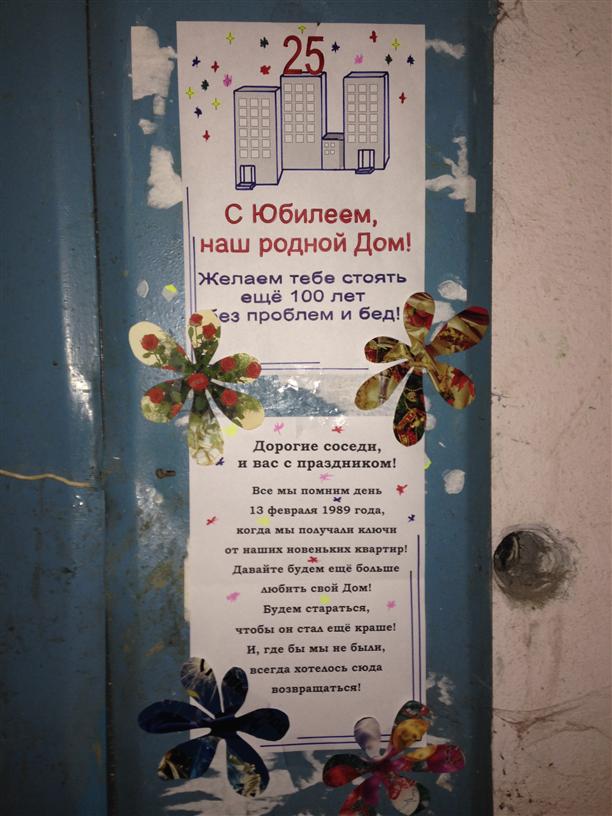 25
С Юбилеем,
наш родной Дом!
Желаем тебе стоять
ещё 100 лет
без проблем и бед!
Дорогие соседи,
и вас с праздником!
Все мы помним день
13 февраля 1989 года,
когда мы получали ключи
от наших новеньких квартир!
Давайте будем ещё больше
любить свой Дом!
Будем стараться,
чтобы он стал ещё краше!
И, где бы мы не были,
всегда хотелось сюда
возвращаться!